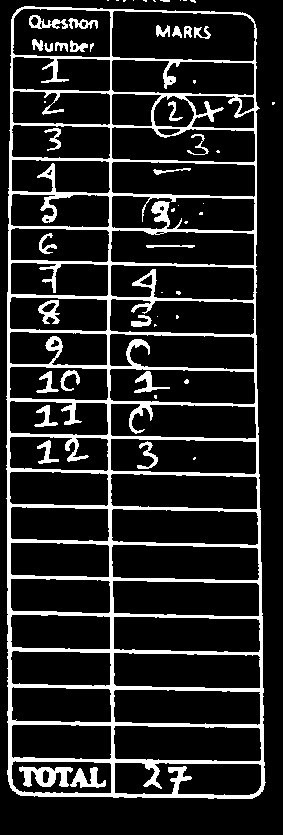 Question Number MARKS
1 6.
2 2 + 2
3 3.
4 —
5
6 —
7 4.
8 3.
9 0
10 1.
11 0
12 3
TOTAL 27